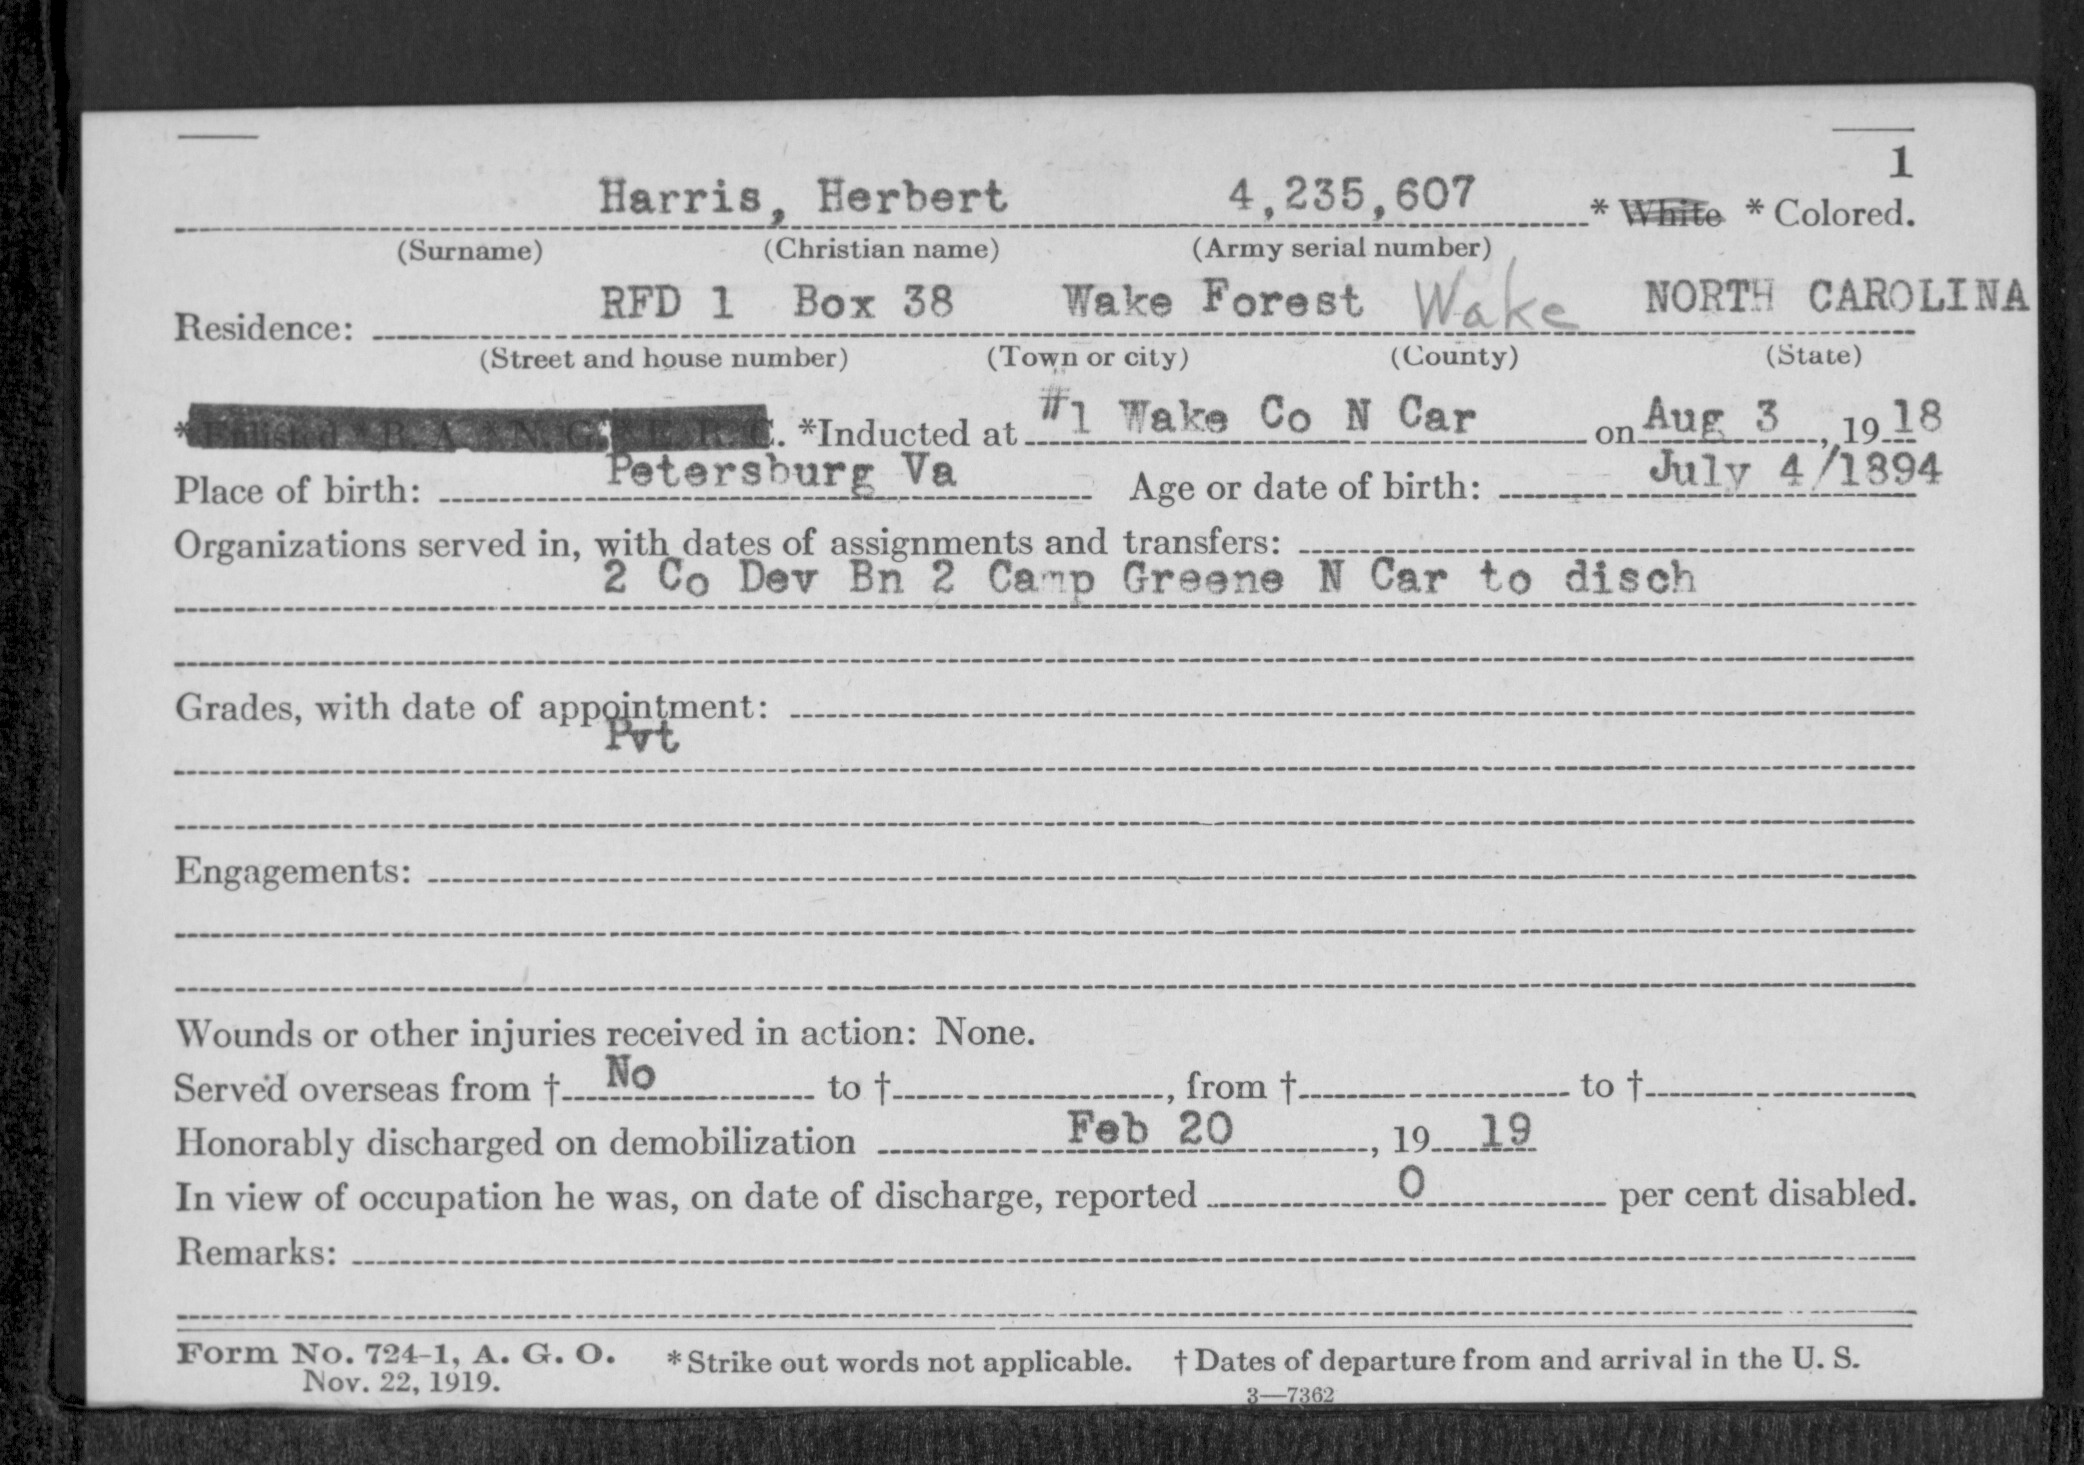 1
Harris, Herbert 4,235,607 * White * Colored.
(Surname) (Christian name) (Army serial number)
Residence: RFD 1 Box 38 Wake Forest Wake NORTH CAROLINA
(Street and house number) (Town or city) (County) (State)
* Enlisted * R. A. * N. G. * E. R. C. *Inducted at #1 Wake Co N Car on Aug 3, 1918
Place of birth: Petersburg Va Age or date of birth: July 4/1894
Organizations served in, with dates of assignments and transfers:
2 Co Dev Bn 2 Camp Greene N Car to disch
Grades, with date of appointment:
Pvt
Engagements:
Wounds or other injuries received in action: None.
Served overseas from † No to †, from † to †
Honorably discharged on demobilization Feb 20, 19 19
In view of occupation he was, on date of discharge, reported 0 per cent disabled.
Remarks:
Form No. 724-1, A. G. O. * Strike out words not applicable. † Dates of departure from and arrival in the U. S.
Nov. 22, 1919.
3—7362